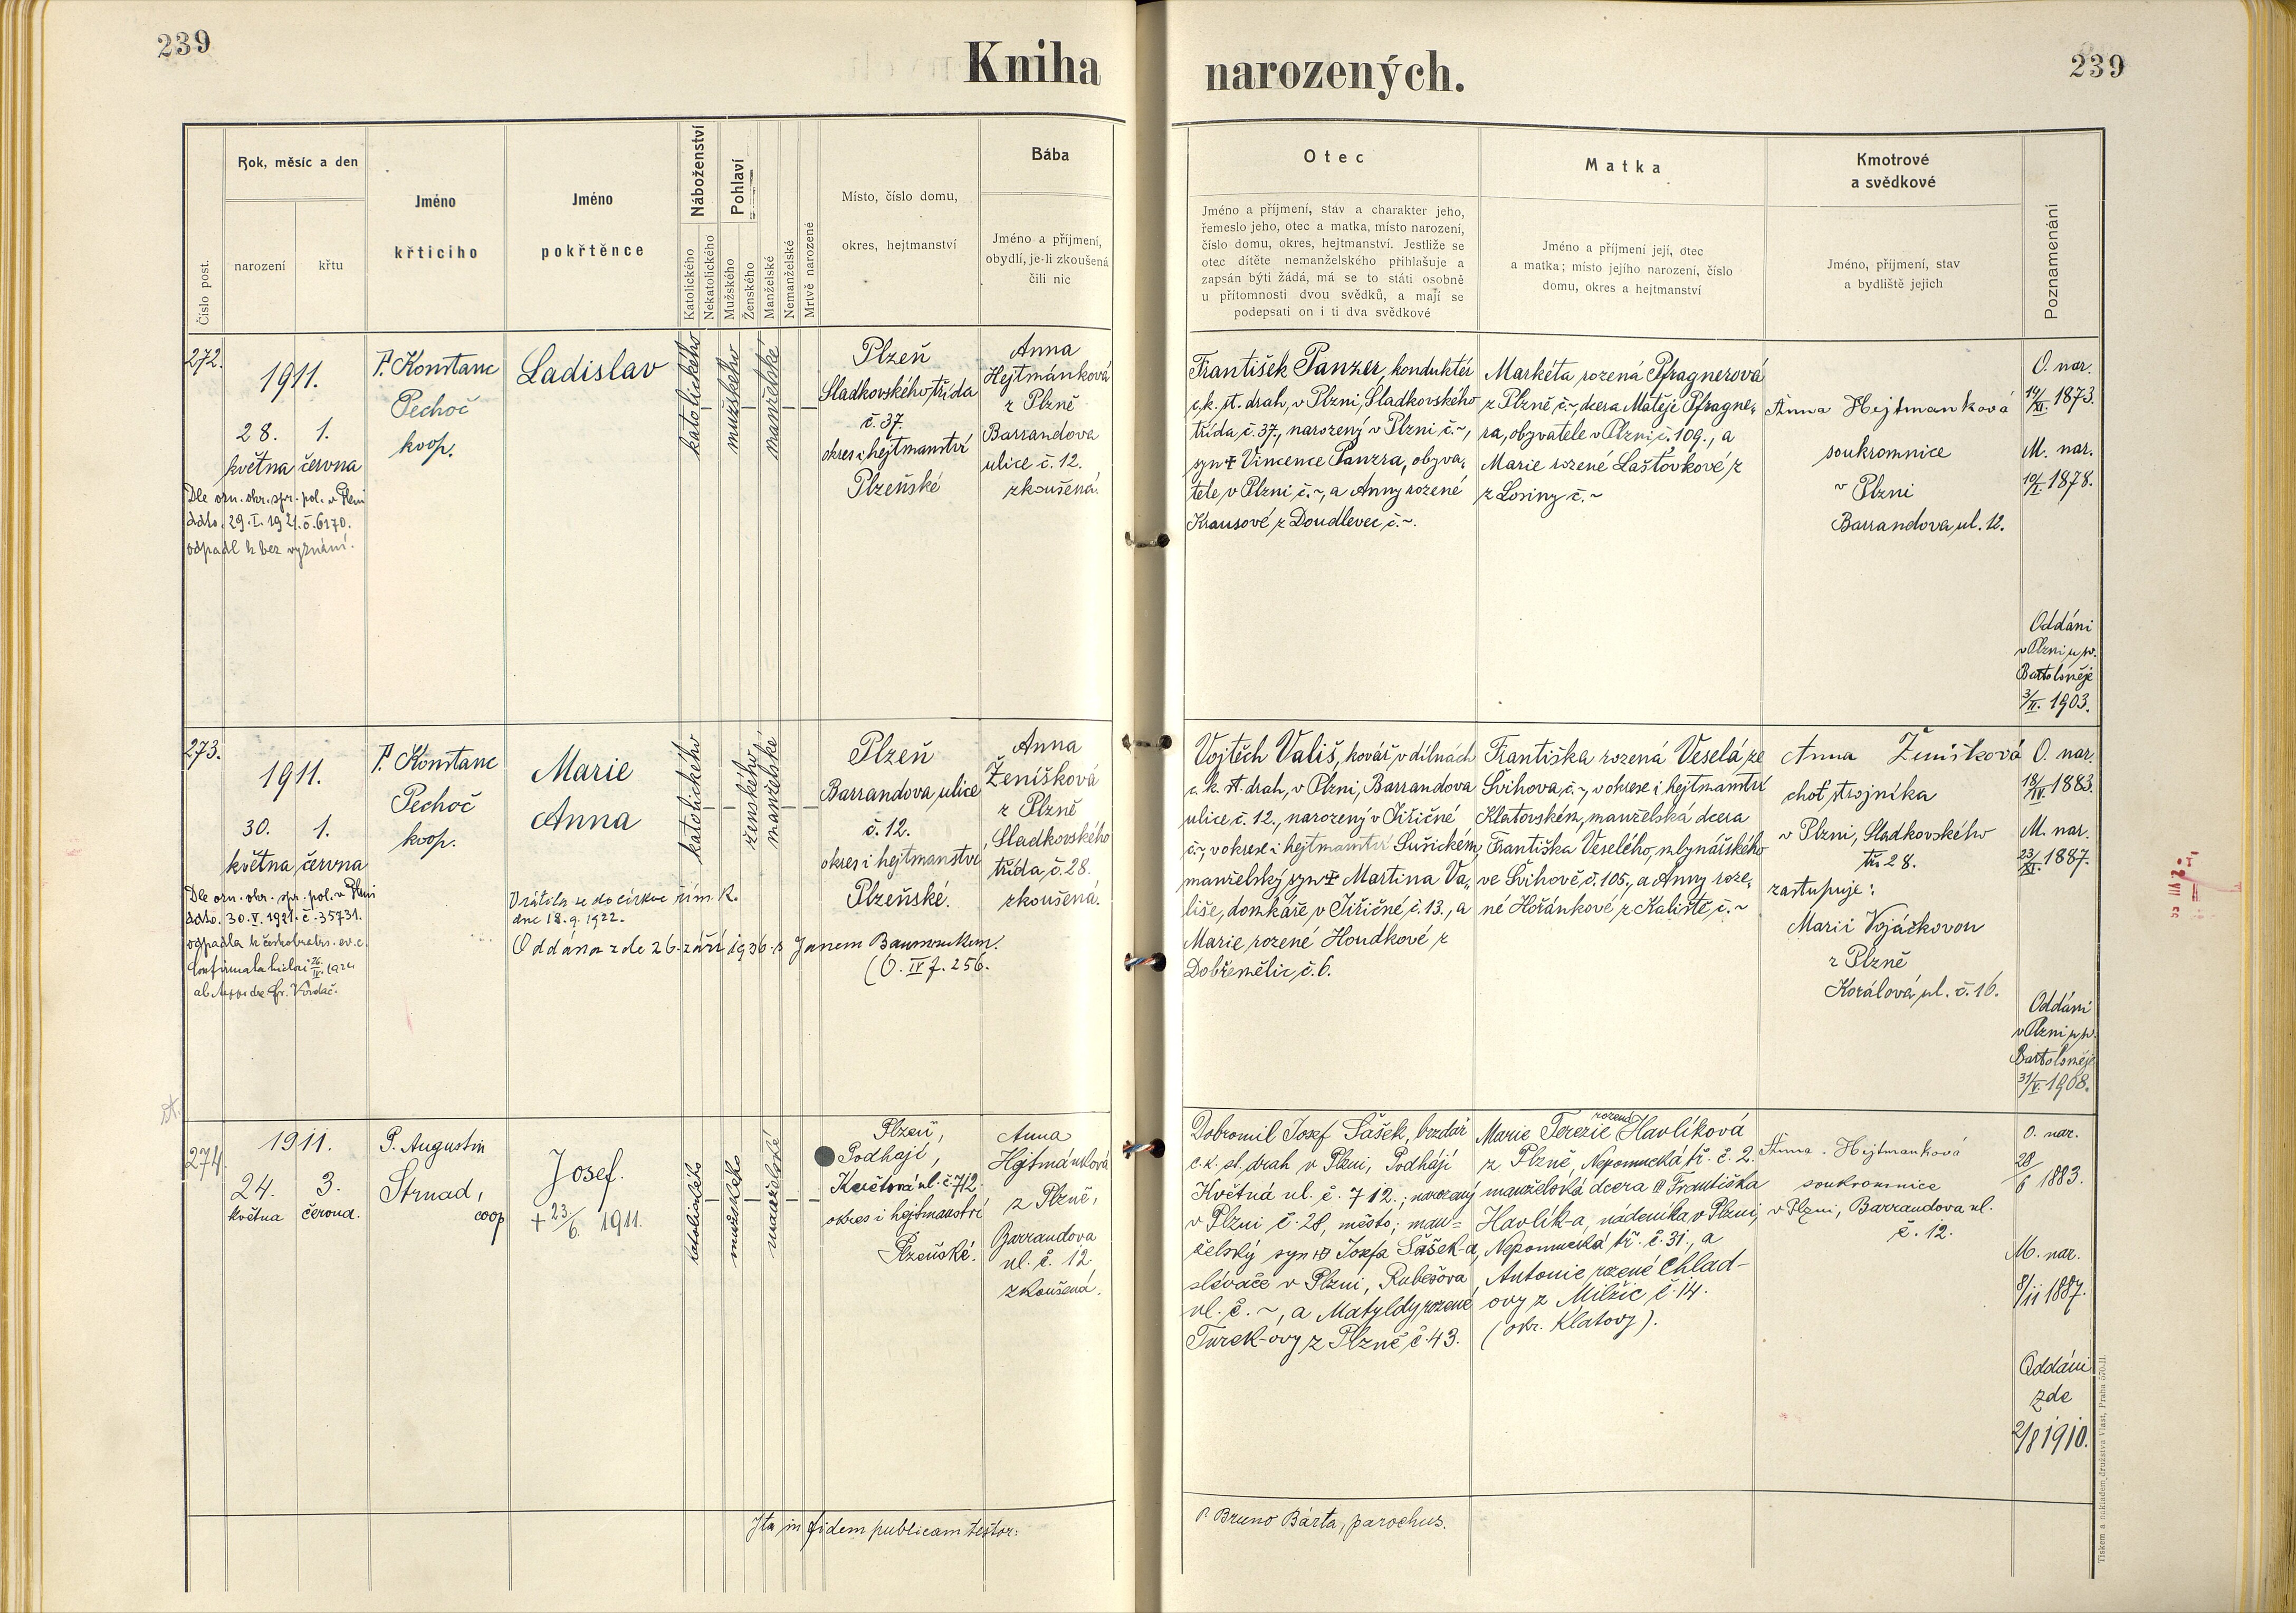 239
Kniha narozených.
239
Číslo post.
Rok, měsíc a den
narození
křtu
Jméno
křticího
Jméno
pokřtěnce
Náboženství
Katolického
Nekatolického
Pohlaví
Mužského
Ženského
Manželské
Nemanželské
Mrtvě narozené
Místo, číslo domu,
okres, hejtmanství
Bába
Jméno a příjmení,
obydlí, je-li zkoušená
čili nic
Otec
Jméno a příjmení, stav a charakter jeho,
řemeslo jeho, otec a matka, místo narození,
číslo domu, okres, hejtmanství. Jestliže se
otec dítěte nemanželského přihlašuje a
zapsán býti žádá, má se to státi osobně
u přítomnosti dvou svědků, a mají se
podepsati on i ti dva svědkové
Matka
Jméno a příjmení její, otec
a matka; místo jejího narození, číslo
domu, okres a hejtmanství
Kmotrové
a svědkové
Jméno, příjmení, stav
a bydliště jejich
Poznamenání
272.
1911.
28. 1.
května června
Dle ozn. okr. spr. pol. v Plzni
ddto. 29.I.1921.č.6170.
odpadl k bez vyznání.
P. Konstanc
Pechoč
koop.
Ladislav
katolického
mužského
manželské
Plzeň
Sladkovského třída
č. 37.
okres i hejtmanství
Plzeňské
Anna
Hejtmánková
z Plzně
Barrandova
ulice č. 12.
zkoušená.
František Panzer, konduktér
c.k. st. drah, v Plzni, Sladkovského
třída č. 37., narozený v Plzni č.~,
syn † Vincence Panzra, obyva-
tele v Plzni č.~, a Anny rozené
Krausové z Doudlevec č.~.
Markéta rozená Pfragnerová
z Plzně, č.~, dcera Matěje Pfragne-
ra, obyvatele v Plzni č. 109., a
Marie rozené Lašťovkové z
z Losiny č.~
Anna Hejtmanková
soukromnice
v Plzni
Barrandova ul. 12.
O. nar.
14/XI. 1873.
M. nar.
19/I. 1878.
Oddáni
v Plzni u sv.
Bartoloměje
3/II. 1903.
273.
1911.
30. 1.
května června
Dle ozn. okr. spr. pol. v Plzni
ddto. 30.V.1921.č.35731.
odpadla k českobratrs. ev. c.
P. Konstanc
Pechoč
koop.
Marie
Anna
Vrátila se do církve řím. k.
dne 18.9.1922.
Oddána zde 26. září 1936 s Janem
(O. IV f. 256.
katolického
ženského
manželské
Plzeň
Barrandova ulice
č. 12.
okres i hejtmanství
Plzeňské.
Anna
Ženíšková
z Plzně
Sladkovského
třída č. 28.
zkoušená.
Vojtěch Vališ, kovář v dílnách
c.k. st. drah, v Plzni, Barrandova
ulice č. 12., narozený v Jiřičné
č.~, v okrese i hejtmanství Sušickém,
manželský syn † Martina Va-
liše, domkáře v Jiřičné č. 13., a
Marie rozené Houdkové z
Dobřemělic č. 6.
Františka rozená Veselá, ze
Švihova, č.~, v okrese i hejtmanství
Klatovském, manželská dcera
Františka Veselého, mlynářského
ve Švihově č. 105., a Anny roze-
né Hořánkové z Kaliště, č.~
Anna Ženíšková
choť strojníka
v Plzni, Sladkovského
tř. 28.
zastupuje:
Marii Vojáčkovou
z Plzně
Korálová ul. č. 16.
O. nar.
18/IV. 1883.
M. nar.
23/XI. 1887.
Oddáni
v Plzni u sv.
Bartoloměje
31/V. 1908.
274.
1911.
24. 3.
května června.
P. Augustin
Strnad,
coop
Josef.
+ 23/6. 1911.
katolického
mužského
manželské
Plzeň,
Podhájí,
Květová ul. č. 712.
okres i hejtmanství
Plzeňské.
Anna
Hejtmánková
z Plzně,
Barrandova
ul. č. 12,
zkoušená.
Dobromil Josef Šášek, brzdař
c.k. st. drah v Plzni, Podhájí
Květná ul. č. 712.; narozený
v Plzni č. 28, město; man-
želský syn Josefa Šášek-a,
slévače v Plzni, Rubešova
ul. č. ~, a Matyldy rozené
Turek-ovy z Plzně č. 43.
Marie Terezie rozená Havlíková
z Plzně, Nepomucká tř. č. 2.
manželská dcera Františka
Havlík-a, nádeníka v Plzni,
Nepomucká tř. č. 31., a
Antonie rozené Chlad-
ovy z Milžic č. 14.
(okr. Klatovy).
Anna Hejtmanková
soukromnice
v Plzni, Barrandova ul.
č. 12.
O. nar.
28/6 1883.
M. nar.
8/11 1887.
Oddáni
zde
2/8 1910.
Ita in fidem publicam testor:
P. Bruno Bárta, parochus.
Tiskem a nákladem družstva Vlast, Praha 570-II.